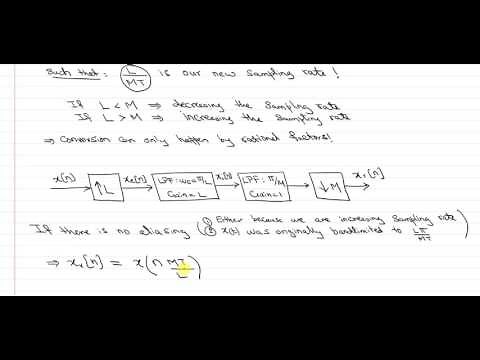 Such that: L/MT is our new sampling rate!
If L < M ⇒ decreasing the Sampling rate
If L > M ⇒ increasing the Sampling rate
⇒ Conversion can only happen by rational factors!
x[n] ↑L xe[n] LPF: ωc=π/L Gain=L xi[n] LPF: π/M Gain=1 ↓M xr[n]
If there is no aliasing (① Either because we are increasing sampling rate
② x(t) was originally bandlimited to Lπ/MT)
⇒ xr[n] = x(n MT/L)